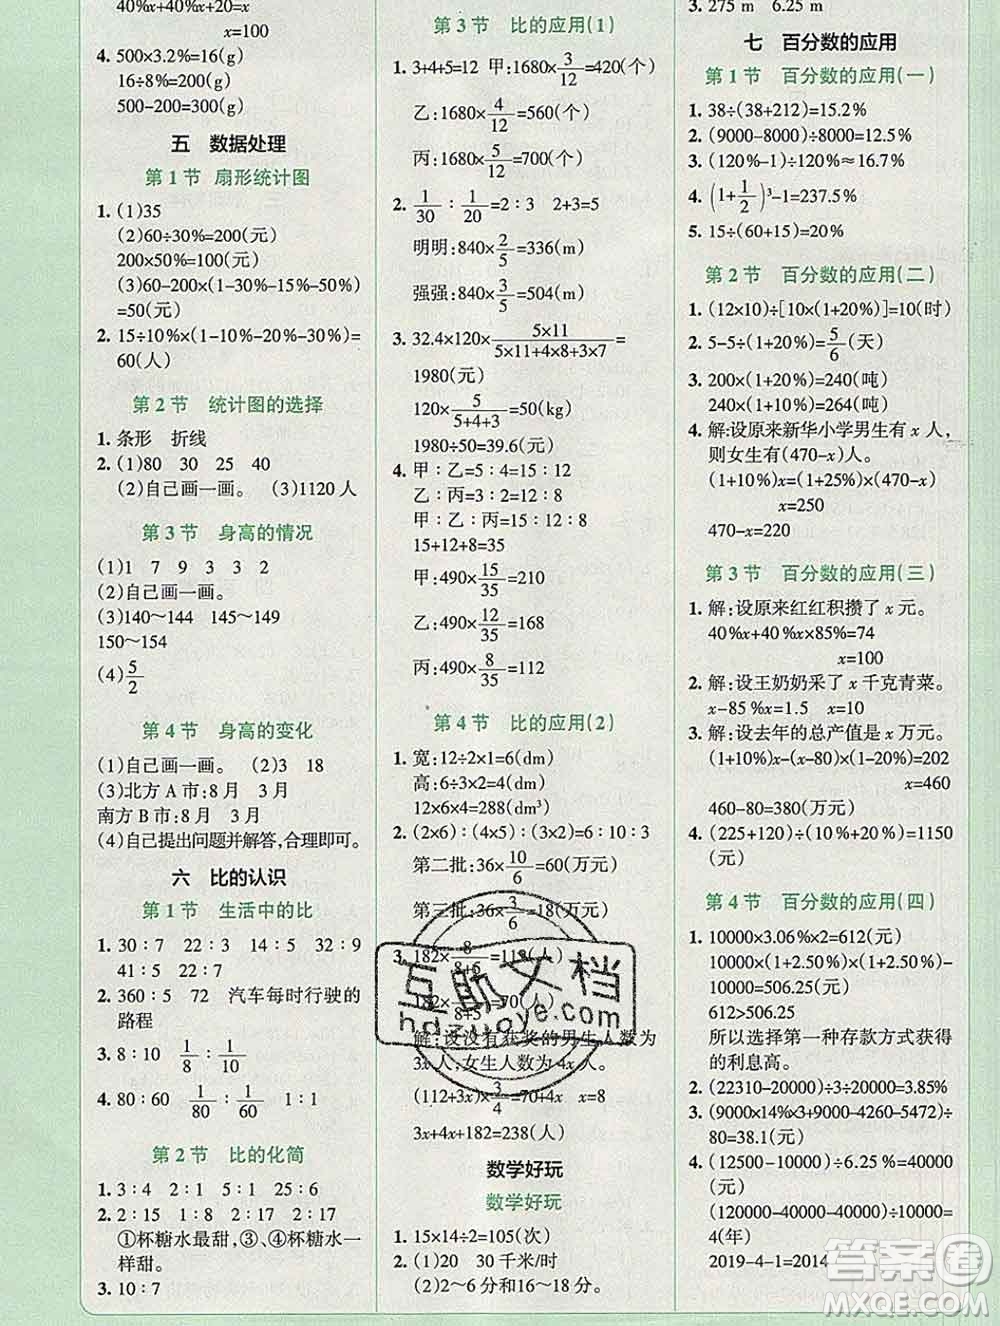 40%x+40%x×85%=x
x=100
4. 500×3.2%=16(g)
16÷8%=200(g)
500-200=300(g)
五 数据处理
第1节 扇形统计图
1. (1)35
(2)60÷30%=200(元)
200×50%=100(元)
(3)60-200×(1-30%-15%-30%)
=50(元)
2. 15÷10%×(1-10%-20%-30%)=
60(人)
第2节 统计图的选择
1. 条形 折线
2. (1)80 30 25 40
(2)自己画一画。 (3)1120人
第3节 身高的情况
(1)1 7 9 3 3 2
(2)自己画一画。
(3)140~144 145~149
150~154
(4)5/2
第4节 身高的变化
(1)自己画一画。 (2)3 18
(3)北方A市:8月 3月
南方B市:8月 3月
(4)自己提出问题并解答,合理即可。
六 比的认识
第1节 生活中的比
1. 30∶7 22∶3 14∶5 32∶9
41∶5 22∶7
2. 360∶5 72 汽车每时行驶的
路程
3. 8∶10 1/8∶1/10
4. 80∶60 1/80∶1/60 1∶1
第2节 比的化简
1. 3∶4 2∶1 5∶1 25∶6
2. 2∶15 1∶8 2∶17 2∶15
①杯糖水最甜,③、④杯糖水一
样甜。
3. 10∶7
第3节 比的应用(1)
1. 3+4+5=12 甲:1680×3/12=420(个)
乙:1680×4/12=560(个)
丙:1680×5/12=700(个)
2. 1/30∶1/20=2∶3 2+3=5
明明:840×2/5=336(m)
强强:840×3/5=504(m)
3. 32.4×120×5×11/(5×11+4×8+3×7)=
1980(元)
120×5/(5+4+3)=50(kg)
1980÷50=39.6(元)
4. 甲∶乙=5∶4=15∶12
乙∶丙=3∶2=12∶8
甲∶乙∶丙=15∶12∶8
15+12+8=35
甲:490×15/35=210
乙:490×12/35=168
丙:490×8/35=112
第4节 比的应用(2)
1. 宽:12÷2×1=6(dm)
高:6÷3×2=4(dm)
12×6×4=288(dm³)
2. (2×6)∶(4×5)∶(3×2)=6∶10∶3
第二批:36×10/6=60(万元)
第三批:36×3/6=18(万元)
3. 182×8/(8+5)=112(人)
182×5/(8+5)=70(人)
解:设没有获奖的男生人数为
3x人,女生人数为4x人。
(112+3x)×3/4=70+4x x=8
3x+4x+182=238(人)
数学好玩
数学好玩
1. 15×14÷2=105(次)
2. (1)20 30千米/时
(2)2~6分和16~18分。
3. 275 m 6.25 m
七 百分数的应用
第1节 百分数的应用(一)
1. 38÷(38+212)=15.2%
2. (9000-8000)÷8000=12.5%
3. (120%-1)÷120%≈16.7%
4. (1+1/2)³-1=237.5%
5. 15÷(60+15)=20%
第2节 百分数的应用(二)
1. (12×10)÷[10×(1+20%)]=10(时)
2. 5-5÷(1+20%)=5/6(天)
3. 200×(1+20%)=240(吨)
240×(1+10%)=264(吨)
4. 解:设原来新华小学男生有x人,
则女生有(470-x)人。
(1+10%)x=(1+25%)×(470-x)
x=250
470-x=220
第3节 百分数的应用(三)
1. 解:设原来红红积攒了x元。
40%x+40%x×85%=74
x=100
2. 解:设王奶奶采了x千克青菜。
x-85%x=1.5 x=10
3. 解:设去年的总产值是x万元。
(1+10%)x-(x-80)×(1-20%)=202
x=460
460-80=380(万元)
4. (225+120)÷(10%+20%)=1150
(元)
第4节 百分数的应用(四)
1. 10000×3.06%×2=612(元)
10000×(1+2.50%)×(1+2.50%)-
10000=506.25(元)
612>506.25
所以选择第一种存款方式获得
的利息高。
2. (22310-20000)÷3÷20000=3.85%
3. (9000×14%×3+9000-4260-5472)÷
80=38.1(元)
4. (12500-10000)÷6.25%=40000
(元)
(120000-40000-40000)÷10000=
4(年)
2019-4-1=2014(年)
互助文档
hdzuoye.com
答案圈
MXQE.COM